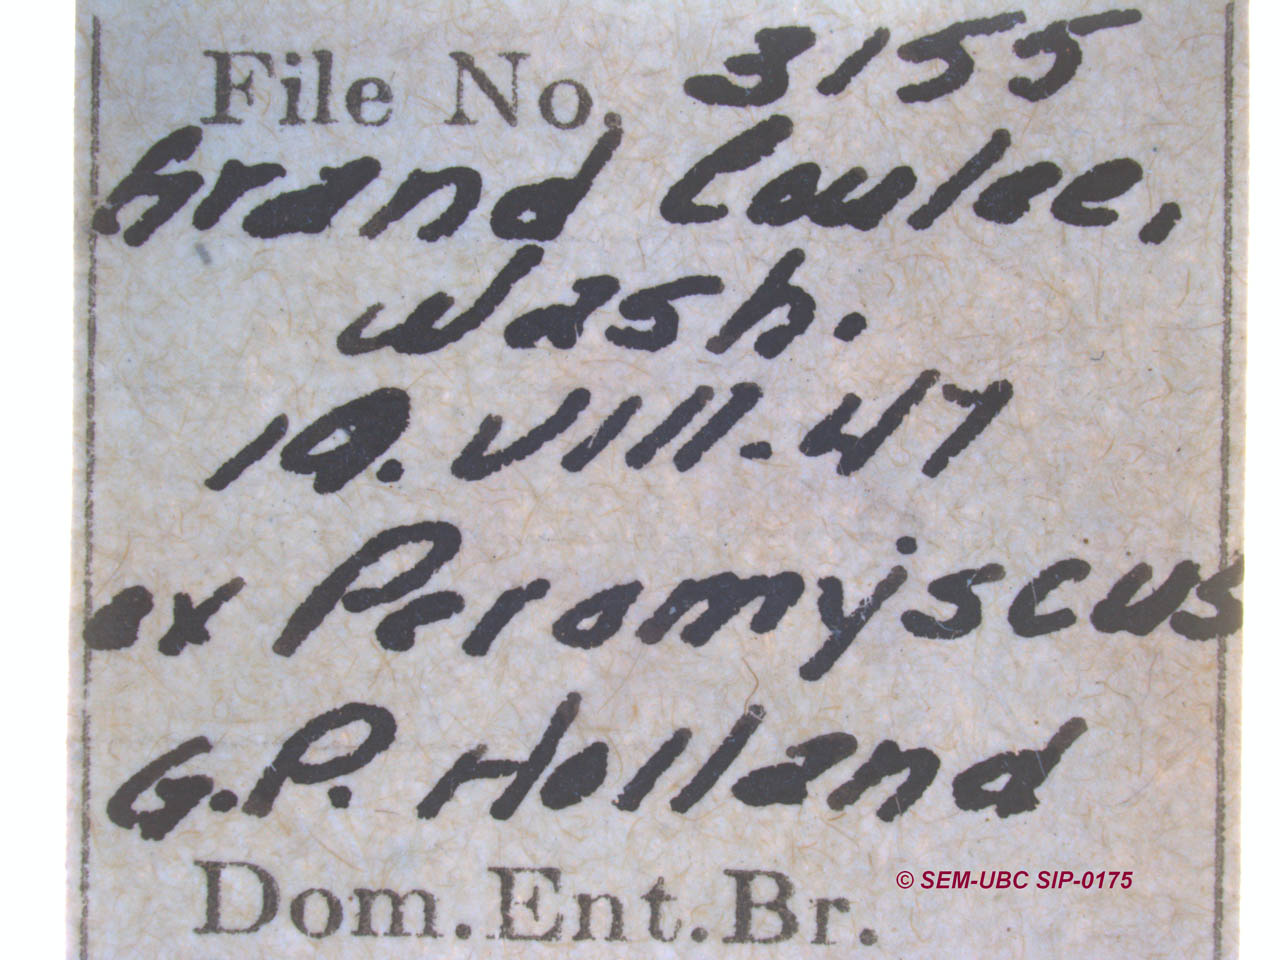 File No. 3155
Grand Coulee,
Wash.
10.VIII.47
ex Peromyscus
G.P. Holland
© SEM-UBC SIP-0175
Dom.Ent.Br.